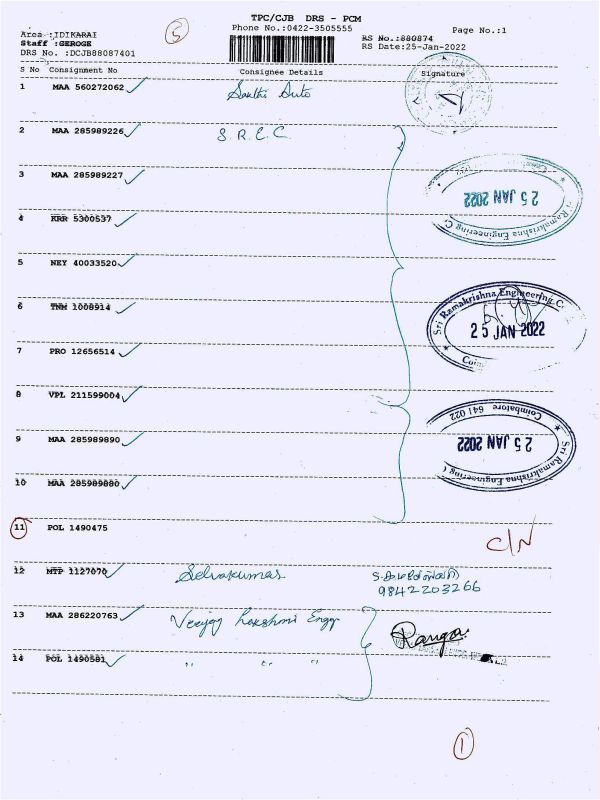 TPC/CJB DRS - PCM
Area :IDIKARAI
Phone No.:0422-3505555
Page No.:1
5
Staff :GEROGE
RS No.:880874
DRS No. :DCJB88087401
RS Date:25-Jan-2022
S No Consignment No Consignee Details Signature
1 MAA 560272062 Sakthi Auto
2 MAA 285989226 S.R.E.C.
3 MAA 285989227
25 JAN 2022
Ramakrishna Engineering C
4 KRR 5300537
5 NEY 40033520
6 TNM 1008914
Sri Ramakrishna Engineering C.
25 JAN 2022
7 PRO 12656514
8 VPL 211599004
Coimbatore 641 022
9 MAA 285989890
25 JAN 2022
Sri Ramakrishna Engineering C
10 MAA 285989880
11 POL 1490475 C/N
12 MTP 1127070 Selvakumar
9842203266
13 MAA 286220763 Veejay Lakshmi Engg
Ranga
14 POL 1490581 " " "
1